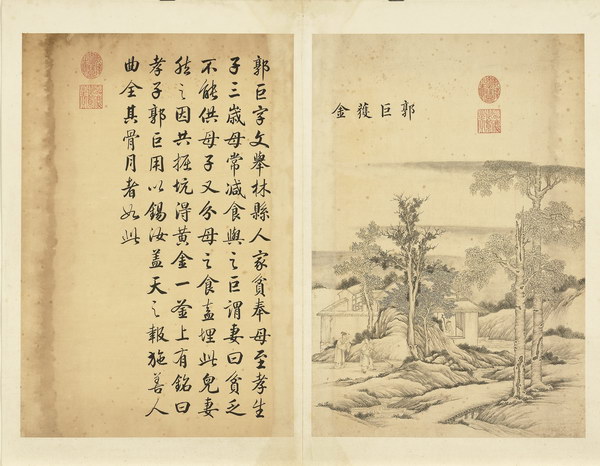 郭巨獲金
郭巨字文舉林縣人家貧奉母至孝生
子三歲母常减食與之巨謂妻曰貧乏
不能供母子又分母之食盍埋此兒妻
然之因共掘坑得黃金一釜上有銘曰
孝子郭巨用以錫汝盖天之報施善人
曲全其骨月者如此